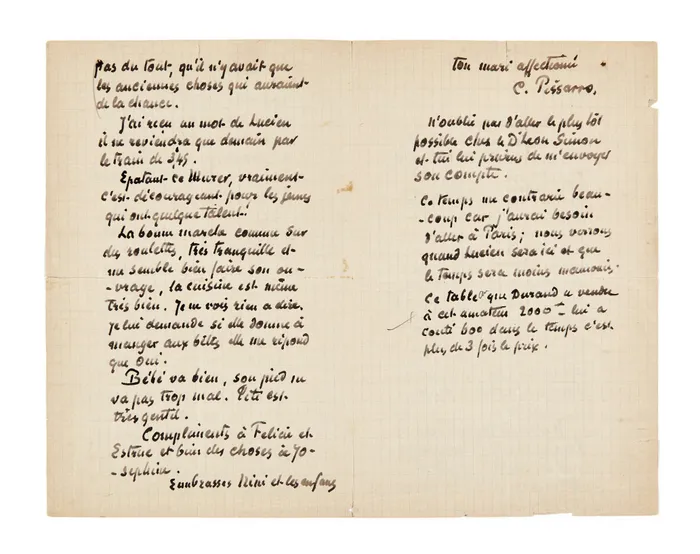 pas du tout, qu'il n'y avait que
les anciennes choses qui auraient
de la chance.
J'ai reçu un mot de Lucien
il ne reviendra que demain par
le train de 3,45.
Epatant ce Murer, vraiment
c'est décourageant pour les jeunes
qui ont quelque talent.
La bonne marche comme sur
des roulettes, très tranquille et
me semble bien faire son ou-
-vrage, la cuisine est même
très bien. Je ne vois rien a dire.
Je lui demande si elle donne à
manger aux bêtes elle me répond
que oui.
Bébé va bien, son pied ne
va pas trop mal. Titi est
très gentil.
Compliments à Felicie et
Estruc et bien des choses à Jo-
-sephine.
Embrasses Nini et les enfants
ton mari affectionné
C. Pissarro.
N'oublie pas d'aller le plus tôt
possible chez le Dr Leon Simon
et tu lui prieras de m'envoyer
son compte.
Ce temps me contrarie beau-
-coup car j'aurai besoin
d'aller à Paris; nous verrons
quand Lucien sera ici et que
le temps sera moins mauvais.
Ce tableau que Durand a vendu
à cet amateur 2000 lui a
couté 600 dans le temps c'est
plus de 3 fois le prix.